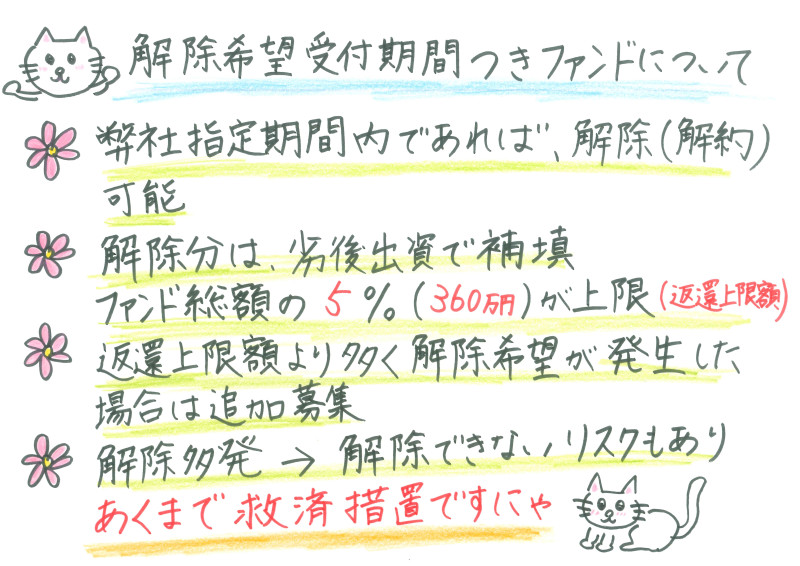 解除希望受付期間つきファンドについて
弊社指定期間内であれば、解除(解約)
可能
解除分は、劣後出資で補填
ファンド総額の5%(360万円)が上限(返還上限額)
返還上限額より多く解除希望が発生した
場合は追加募集
解除多発→解除できないリスクもあり
あくまで救済措置ですにゃ